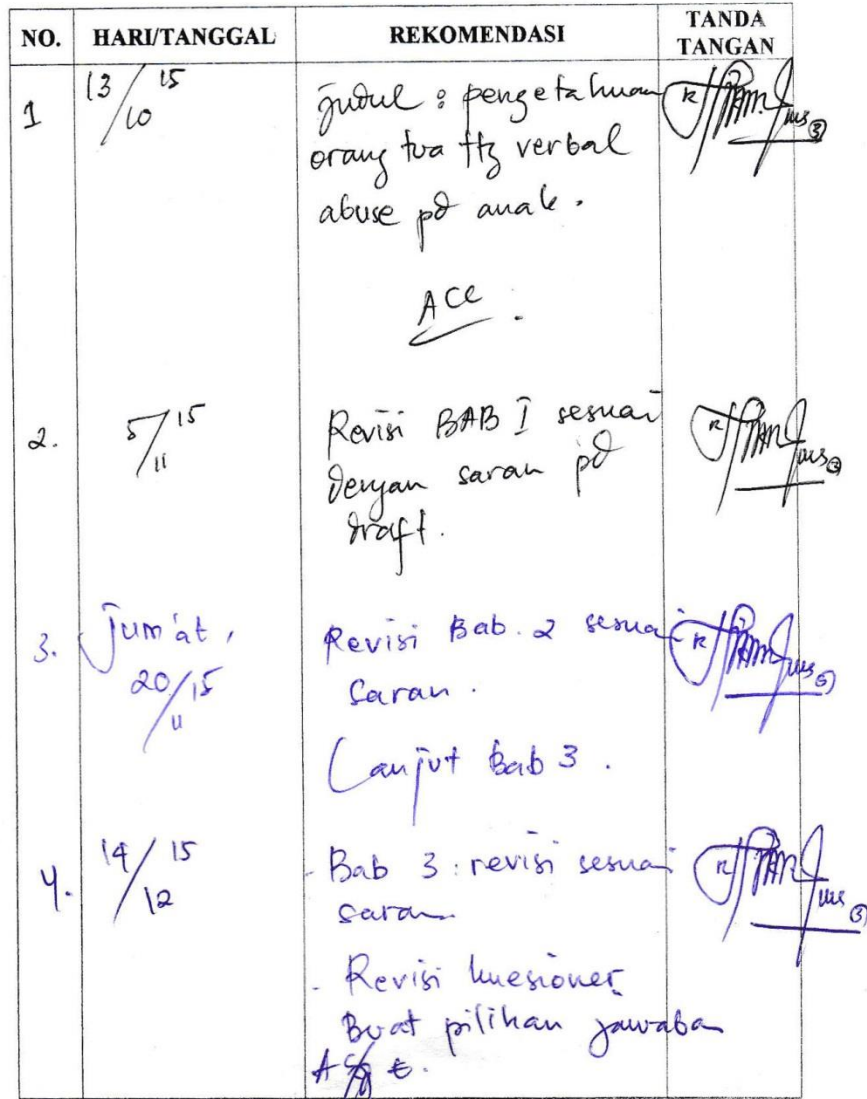 NO. HARI/TANGGAL REKOMENDASI TANDA TANGAN
1 13/10 15 Judul : pengetahuan
orang tua ttg verbal
abuse pd anak.
ACC.
2. 5/11 15 Revisi BAB I sesuai
dengan saran pd
draft.
3. Jum'at, Revisi Bab. 2 sesuai
20/11 15 saran.
Lanjut Bab 3.
4. 14/12 15 - Bab 3 : revisi sesuai
saran
- Revisi kuesioner
Buat pilihan jawaban